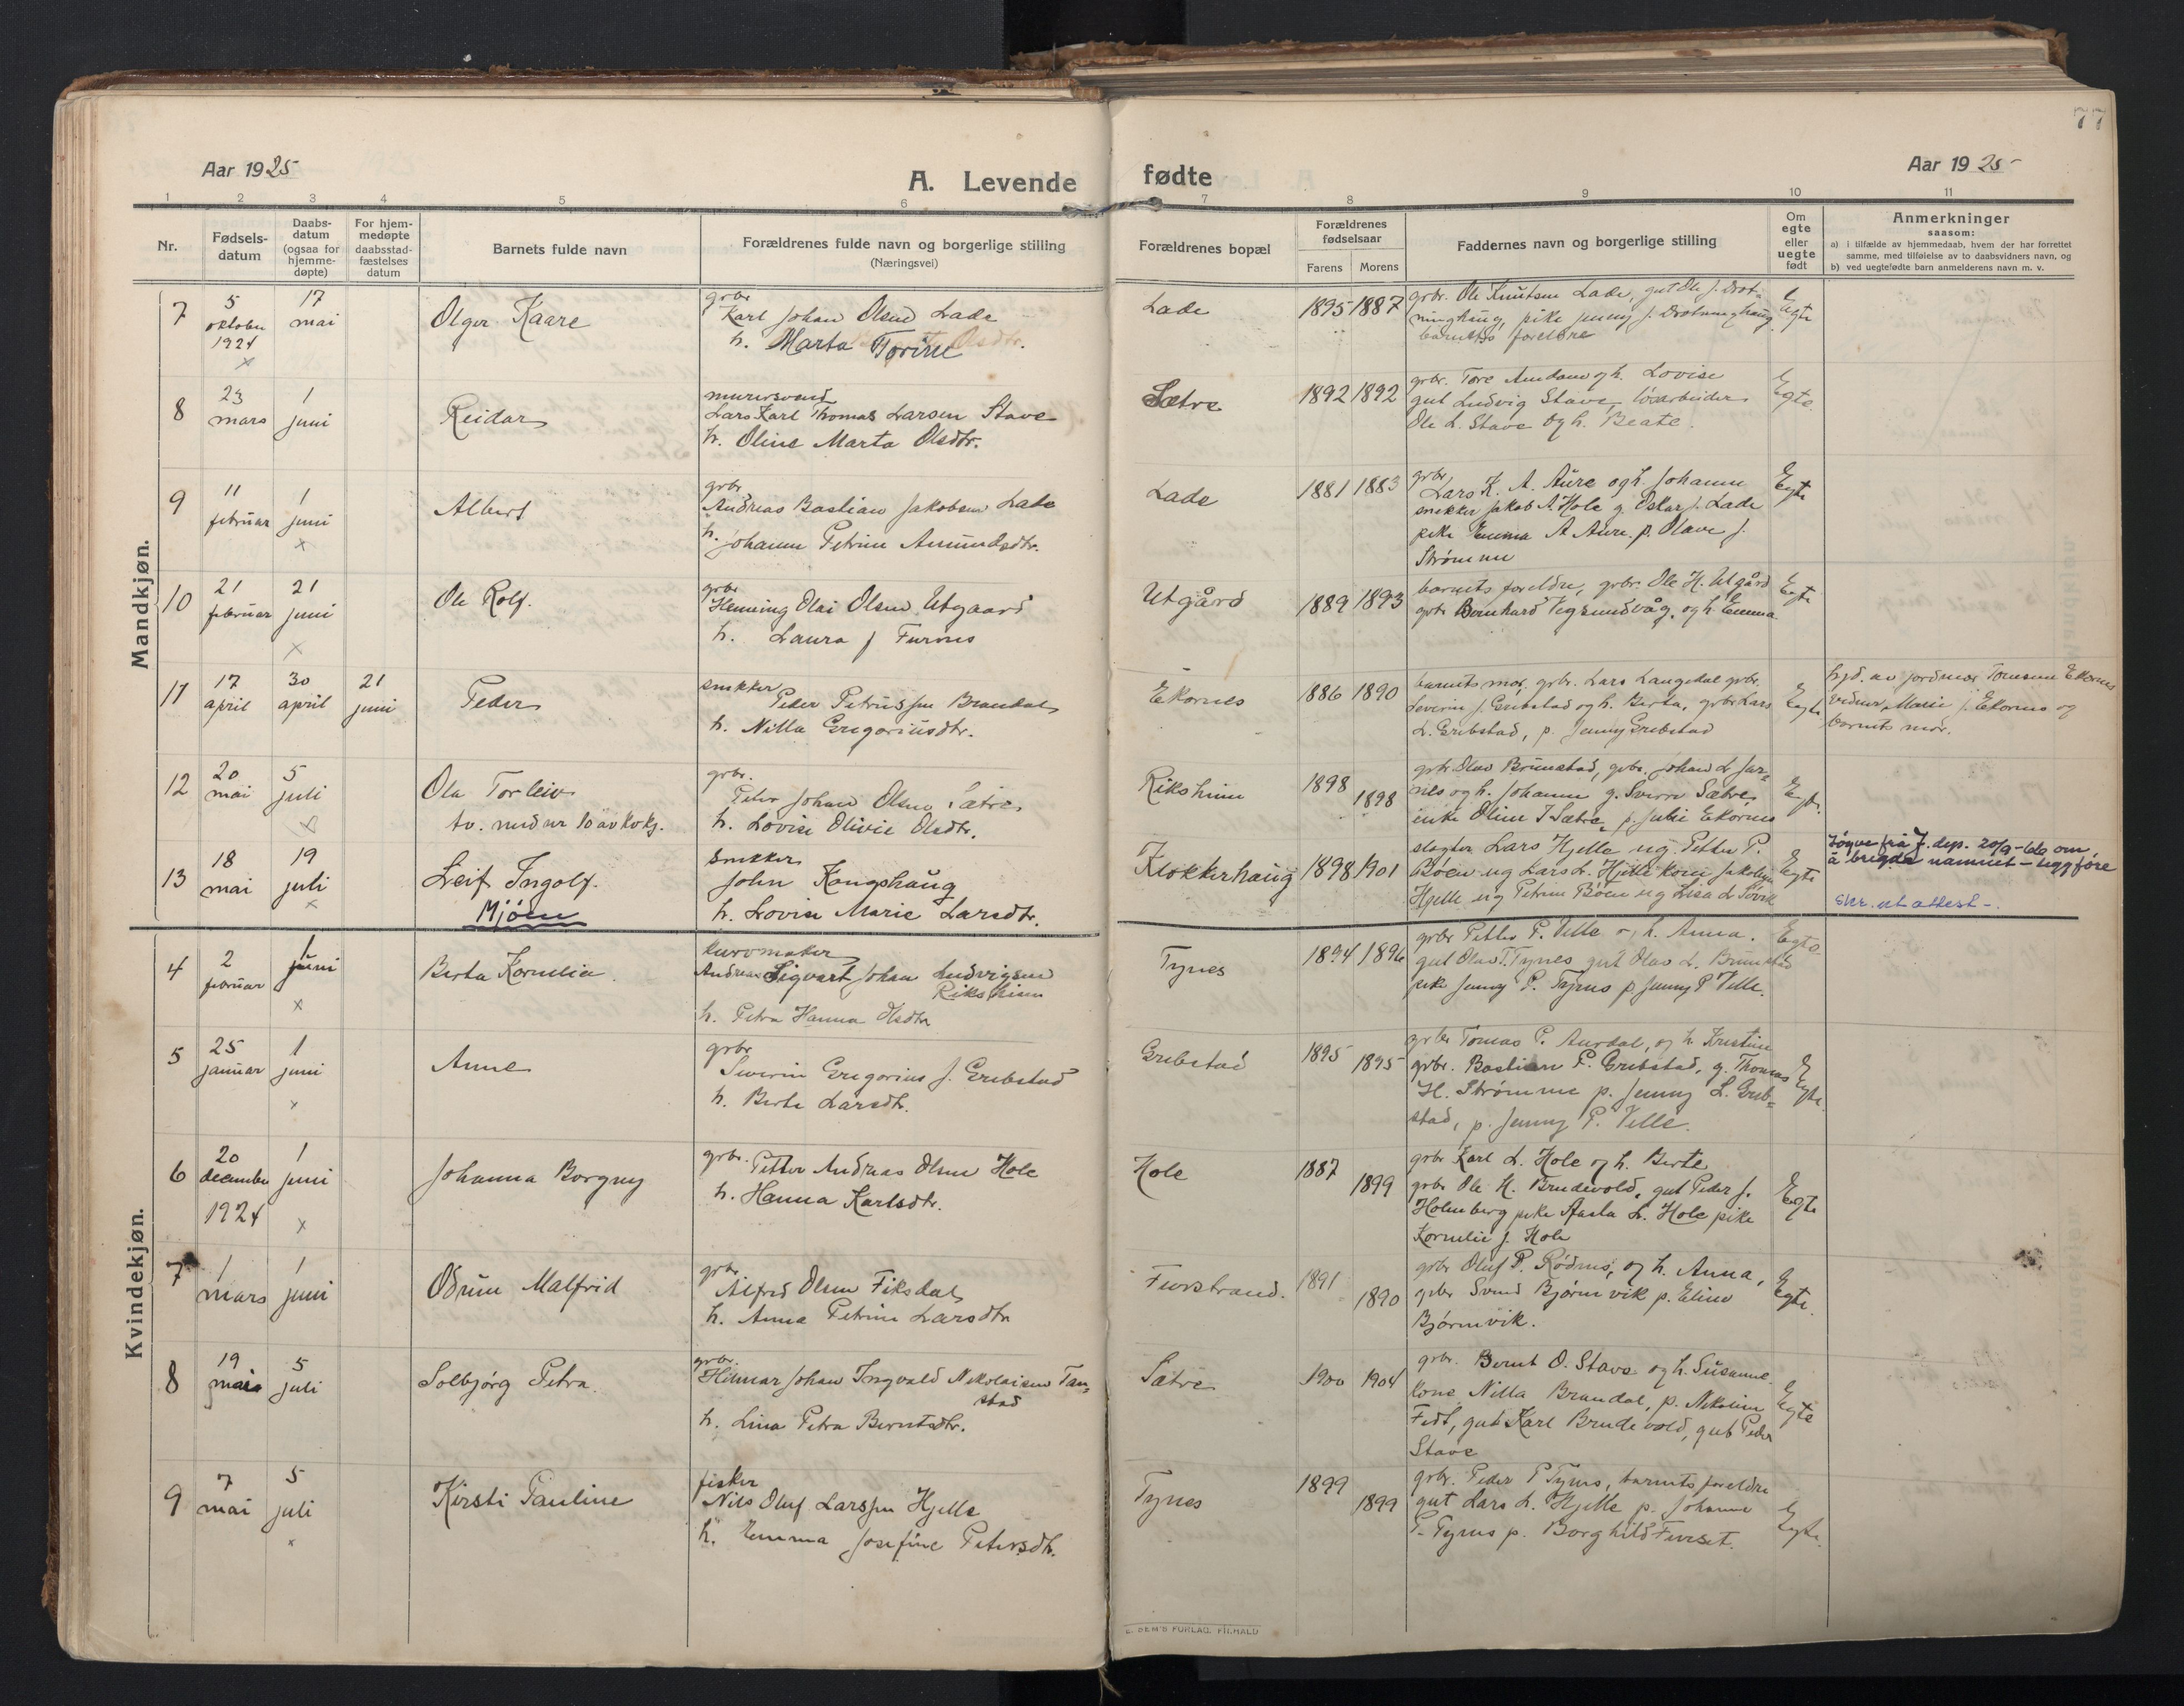 77
Aar 1925
A. Levende fødte
Aar 1925
1 2 3 4 5 6 7 8 9 10 11
Nr.
Fødsels-
datum
Daabs-
datum
(ogsaa for
hjemme-
døpte)
For hjem-
medøpte
daabsstad-
fæstelses
datum
Barnets fulde navn
Forældrenes fulde navn og borgerlige stilling
(Næringsvei)
Forældrenes bopæl
Forældrenes
fødselsaar
Farens Morens
Faddernes navn og borgerlige stilling
Om
egte
eller
uegte
født
Anmerkninger
saasom:
a) i tilfælde av hjemmedaab, hvem der har forrettet
samme, med tilføielse av to daabsvidners navn, og
b) ved uegtefødte barn anmelderens navn m. v.
Mandkjøn.
7
5 oktober 1924
17 mai
Olger Kaare
grbr
Karl Johan Olsen Lade
h. Marta Torine
Lade
1895 1887
grbr. Ole Knutsen Lade, gut Ole J. Drot-
ninghaug, pike Jenny J. Drotninghaug
barnets foreldre
Egte
8
23 mars
1 juni
Reidar
murersvend
Lars Karl Thomas Larsen Stave
h. Oline Marta Olsdtr.
Sætre
1892 1892
grbr. Tore Amdam og h. Lovise
gut Ludvig Stave, løsarbeider
Ole L. Stave og h. Beate.
Egte.
9
11 februar
1 juni
x
Albert
grbr
Andreas Bastian Jakobsen Lade
h. Johanne Petrine Amundsdtr.
Lade
1881 1883
grbr
Lars K. A. Aure og h. Johanne
snekker Jakob A. Hole g. Oskar J. Lade
pike Emma A Aure. p. Olave J.
Strømme
Egte
10
21 februar
21 juni
x
Ole Rolf.
grbr
Henning Olai Olsen Utgaard
h. Laura J Furnes
Utgård
1889 1893
barnets foreldre, grbr. Ole H. Utgård
grbr Bernhard Vegsundvåg. og h. Emma
Egte
11
17 april
30 april
21 juni
Peder
snekker
Peder Petrussen Brandal
h. Nilla Gregoriusdtr.
Ekornes
1886 1890
barnets mor, grbr. Lars Langedal grbr.
Severin J. Grebstad og h. Berta, grbr Lars
L. Grebstad, p. Jenny Grebstad
Egte
hjd. av jordmor Tomine Ekornes
vidner, Marie J. Ekornes og
barnets mor.
12
20 mai
5 juli
x
Ola Torleiv
tv. med nr 10 av kvkj.
grbr.
Peter Johan Olsen Sætre,
h. Lovise Olivie Olsdtr.
Riksheim
1898
1898
grbr Olav Brunstad, grbr. Johan L Jar-
nes og h. Johanne g. Sverre Sætre,
enke Oline I Sætre, p. Julie Ekornes
Egte.
13
18 mai
19 juli
x
Leif Ingolf.
Mjøen
snekker
John Kongshaug
h. Lovise Marie Larsdtr.
Klokkerhaug
1898 1901
slagter Lars Hjelle ug. Petter P.
Bøen ug Lars L. Hjelle kone Jakobine
Hjelle ug Petrine Bøen ug Lisa L Søvik
Egte
Løyve frå J. dep. 20/9-606 om
å brigda namnet - legg føre
Skr. ut attest -.
Kvindekjøn.
4
2 februar
1 juni
x
Berta Kornelia.
kurvmaker
Andreas Sigvart Johan Ludvigsen
Riksheim
h. Petra Hanna Olsdtr
Tynes
1894 1896
grbr Petter P. Velle o, h. Anna.
gut Olav T. Tynes gut Olav L. Brunstad
pike Jenny P. Tynes p. Jenny P Velle.
Egte
5
25 januar
1 juni
x
Anne
grbr
Severin Gregorius J. Grebstad
h. Berte Larsdtr.
Grebstad
1895
1895
grbr Tomas P. Aurdal, og h Kristine
grbr. Bastian P. Grebstad, g. Thomas
H. Strømme p. Jenny L. Greb-
stad, p. Jenny P. Velle.
Egte.
6
20 december 1924
1 juni
x
Johanna Borgny
grbr. Petter Andreas Olsen Hole
h. Hanna Karlsdtr.
Hole
1887
1899
grbr Karl L. Hole og h. Berte
grbr Ole K. Brudevold, gut Peder J.
Holmberg pike Aasta L. Hole pike
Kornelie J. Hole
Egte
7
1 mars
1 juni
Odrun Malfrid
grbr
Alfred Olsen Fiksdal
h. Anna Petrine Larsdtr
Furstrand.
1891
1890
grbr Oluf P. Rødnes, og h. Anna,
grbr Svend Bjørnevik p. Eline
Bjørnevik.
Egte.
8
19 mars
5 juli
Solbjørg Petra.
grbr.
Hilmar Johan Ingvald Nikolaisen Tan-
stad
h. Lina Petra Berntsdtr.
Sætre
1900 1904
grbr. Bernt O. Stave og h. Susanne.
kone Nilla Brandal, p. Nikoline
Fedt, gut Karl Brudevold, gut Peder
Stave
Egte
9
7 mai
5 juli
x
Kirsti Pauline
fisker
Nils Oluf Larssen Hjelle
h. Emma Josefine Petersdtr.
Tynes
1899
1899
grbr. Peder P Tynes, barnets foreldre
gut Lars L. Hjelle p. Johanne
P. Tynes p. Borghild Furset.
Egte.
E. SEM'S FORLAG, F.HALD